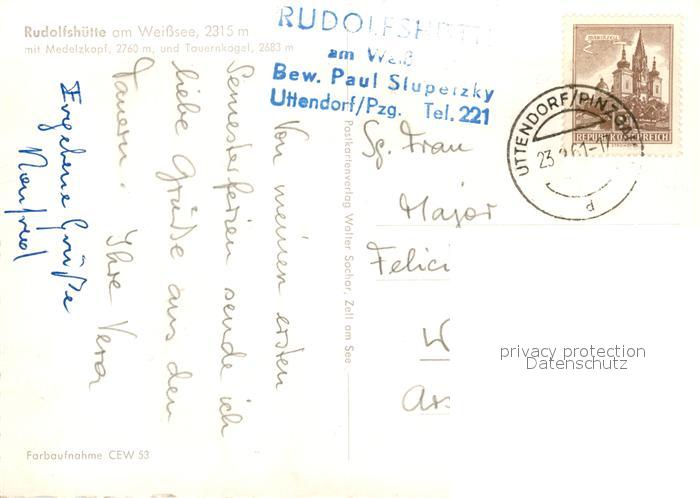 Rudolfshütte am Weißsee, 2315 m
mit Medelzkopf, 2760 m, und Tauernkogel, 2683 m
RUDOLFSHÜTTE
am Weiß
Bew. Paul Slupetzky
Uttendorf/Pzg. Tel. 221
REPUBLIK ÖSTERREICH
UTTENDORF/PINZG
Von meinen ersten
Semesterferien sende ich
liebe Grüße aus den
Tauern.
Ihre Vera
Ergebene Grüße
Manfred
Postkartenverlag Walter Sochor, Zell am See
Sg. Frau
Major
Felici
W
Ars
privacy protection
Datenschutz
Farbaufnahme CEW 53